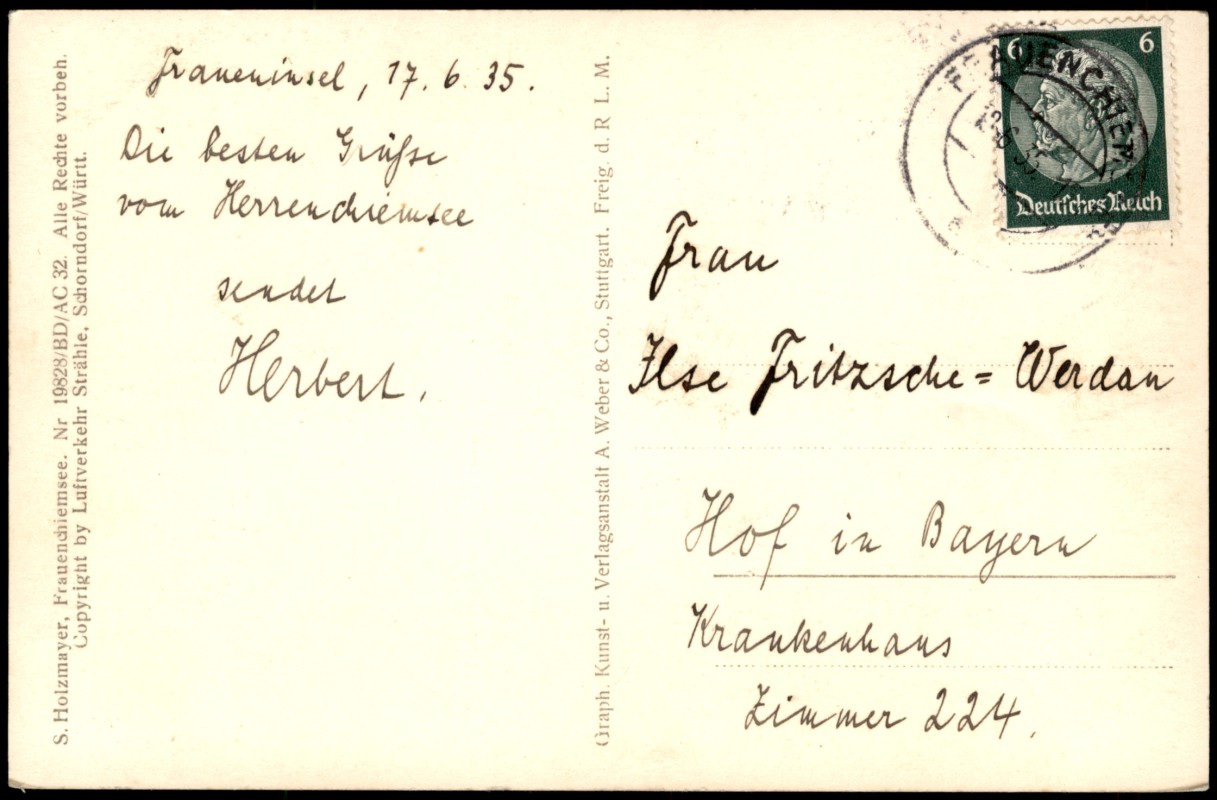 Fraueninsel, 17. 6. 35.
Die besten Grüße
vom Herrenchiemsee
sendet
Herbert.
S. Holzmayer, Frauenchiemsee. Nr 19828/BD/AC 32. Alle Rechte vorbeh.
Copyright by Luftverkehr Strähle, Schorndorf/Württ.
Graph. Kunst- u. Verlagsanstalt A. Weber & Co., Stuttgart. Freig. d. R L. M.
6 6
Deutsches Reich
FRAUENCHIEMSEE
Frau
Ilse Fritzsche = Werdau
Hof in Bayern
Krankenhaus
Zimmer 224.